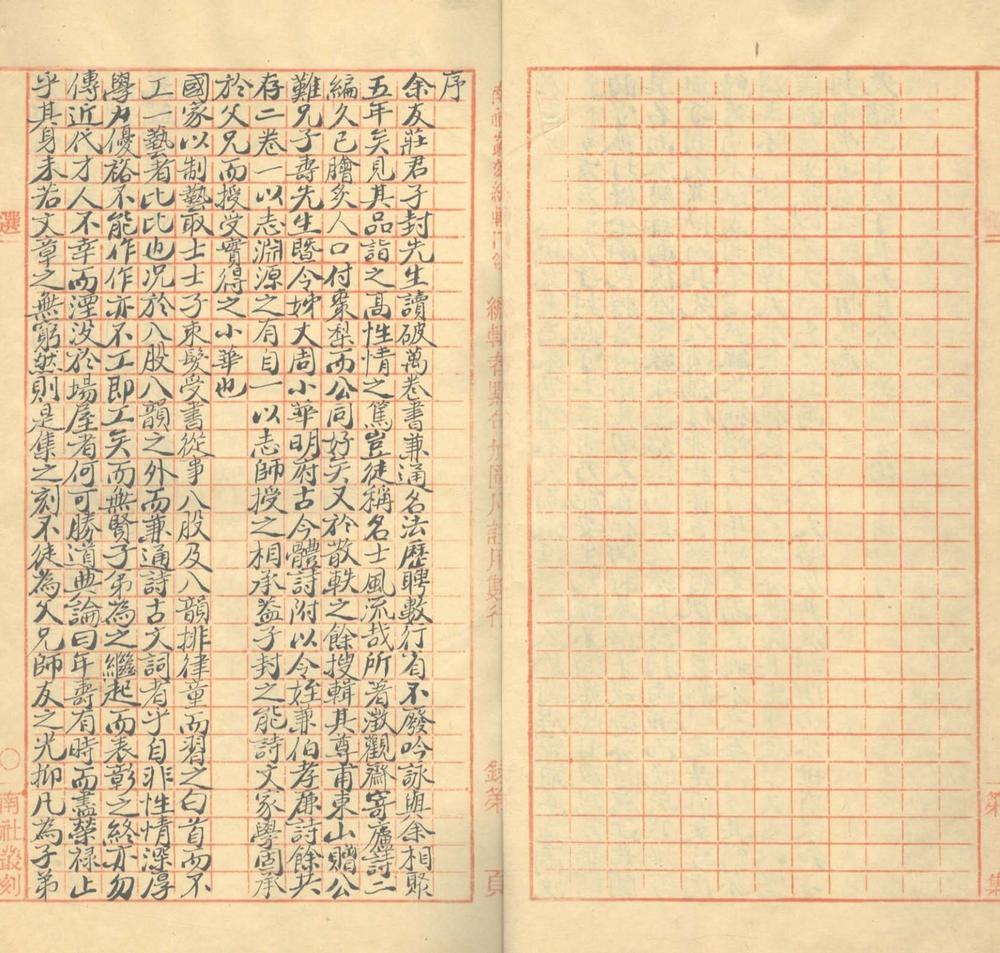 序
余友莊君子封先生讀破萬卷書兼通名法歷聘數行省不廢吟詠與余相聚
五年矣見其品詣之高性情之篤豈徒稱名士風流哉所著澂觀齋寄廬詩二
編久已膾炙人口付棗梨而公同好矣又於散軼之餘搜輯其尊甫東山贈公
難兄子壽先生暨令姊丈周小華明府古今體詩附以令姪兼伯孝廉詩餘共
存二卷一以志淵源之有自一以志師授之相承蓋子封之能詩文家學固承
於父兄而授受實得之小華也
國家以制藝取士士子束髮受書從事八股及八韻排律童而習之白首而不
工一藝者比比也况於八股八韻之外而兼通詩古文詞者乎自非性情深厚
學力優裕不能作作亦不工即工矣而無賢子弟為之繼起而表彰之終亦勿
傳近代才人不幸而湮没於場屋者何可勝道典論曰年壽有時而盡榮祿止
乎其身未若文章之無窮然則是集之刻不徒為父兄師友之光抑凡為子弟
選
○
南社叢刻
編輯者點句加圈凡計用數行
錄第
頁
第
集